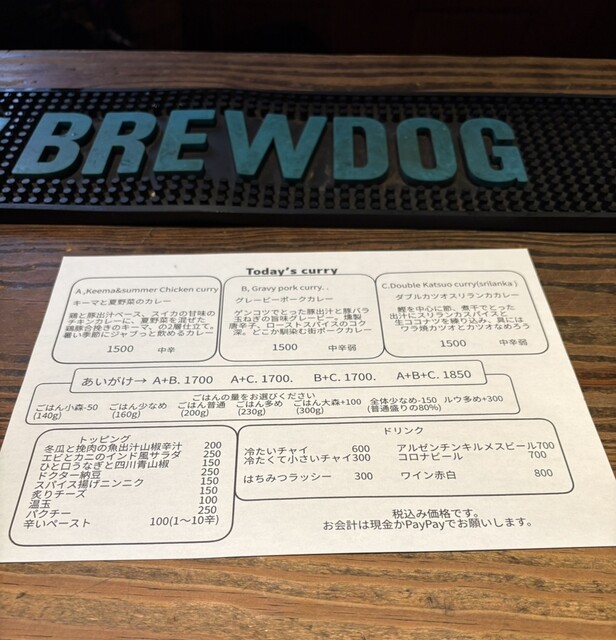 BREWDOG
Today's curry
A,Keema&summer Chicken curry
キーマと夏野菜のカレー
鶏と豚出汁ベース、スイカの甘味の
チキンカレーに、夏野菜を混ぜた
鶏豚合挽きのキーマ、の2層仕立て。
暑い季節にジャブっと飲めるカレー
1500 中辛
B, Gravy pork curry. .
グレービーポークカレー
ゲンコツでとった豚出汁と豚バラ
玉ねぎの旨味グレービー。燻製
唐辛子、ローストスパイスのコク
深。どこか馴染む街ポークカレー
1500 中辛弱
C.Double Katsuo curry(srilanka )
ダブルカツオスリランカカレー
鰹を中心に節、煮干でとった
出汁にスリランカスパイスと、
生ココナツを練り込み、具には
ワラ焼カツオとカツオなめろう
1500 中辛弱
あいがけ→ A+B. 1700 A+C. 1700. B+C. 1700. A+B+C. 1850
ごはんの量をお選びください
ごはん小森-50 ごはん少なめ ごはん普通 ごはん多め ごはん大森+100 全体少なめ-150 ルウ多め+300
(140g) (160g) (200g) (230g) (300g) (普通盛りの80%)
トッピング
冬瓜と挽肉の魚出汁山椒辛汁 200
エビとカニのインド風サラダ 250
ひと口うなぎと四川青山椒 250
ドクター納豆 150
スパイス揚げニンニク 150
炙りチーズ 150
温玉 100
パクチー 250
辛いペースト 100(1〜10辛)
ドリンク
冷たいチャイ 600
冷たくて小さいチャイ300
はちみつラッシー 300
アルゼンチンキルメスビール700
コロナビール 700
ワイン赤白 800
税込み価格です。
お会計は現金かPayPayでお願いします。